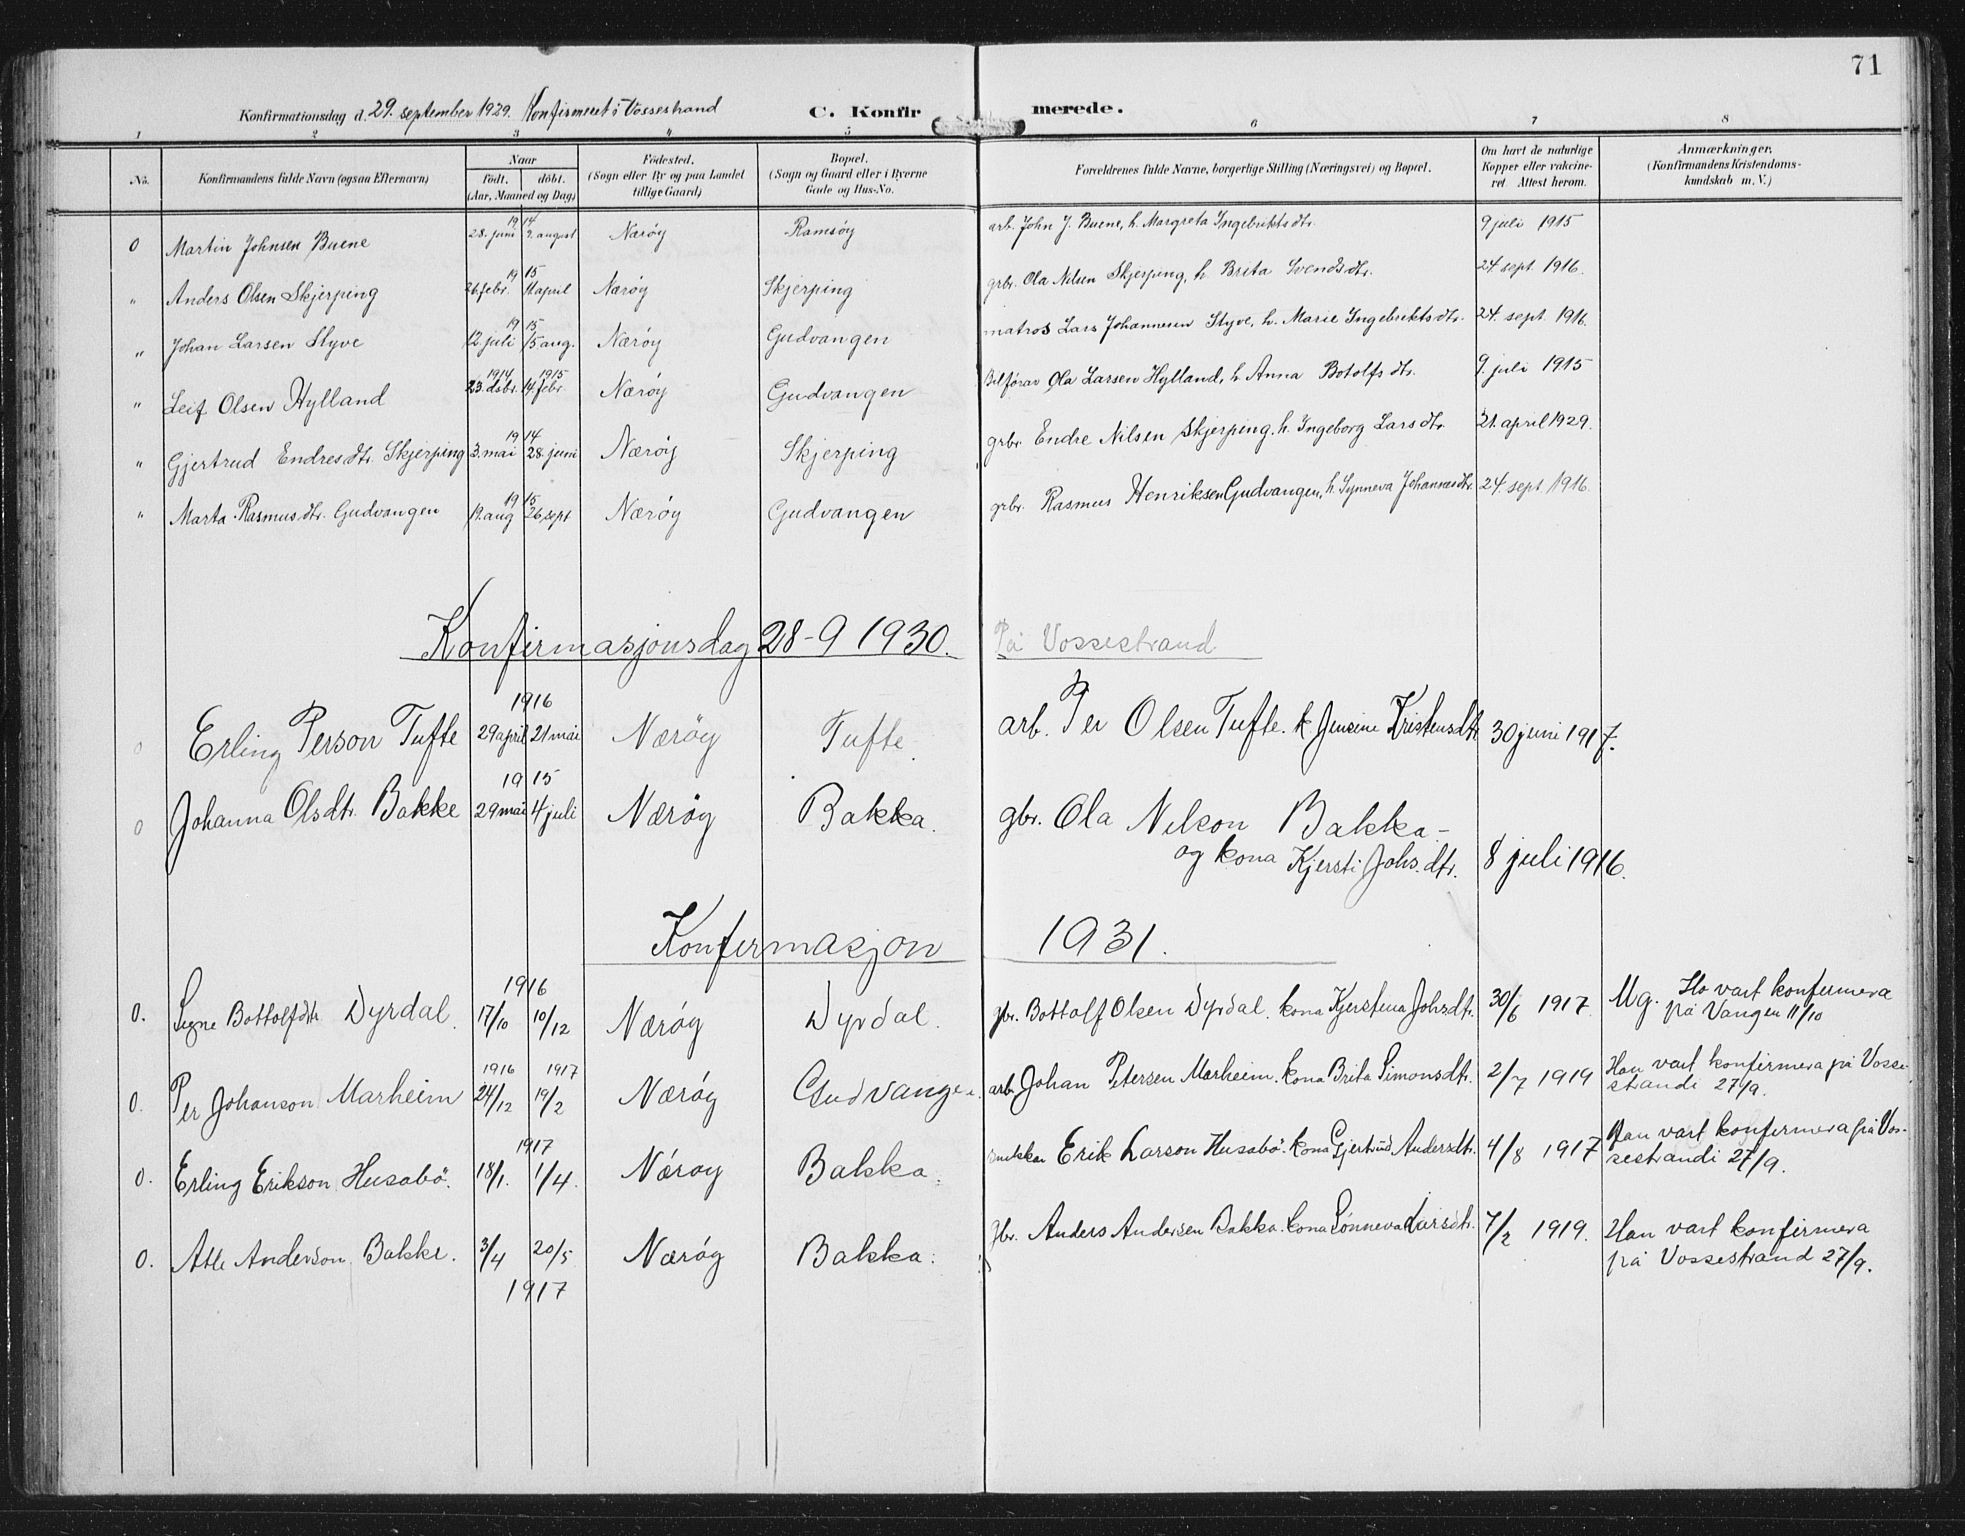 71
Konfirmationsdag d. 29. september 1929. Konfirmert i Vossestrand C. Konfirmerede.
1 2 3 4 5 6 7 8
No. Konfirmandens fulde Navn (ogsaa Efternavn) Naar født. døbt. (Aar, Maaned og Dag) Fødested. (Sogn eller By og paa Landet tillige Gaard) Bopæl. (Sogn og Gaard eller i Byerne Gade og Hus-No. Forældrenes fulde Navne, borgerlige Stilling (Næringsvei) og Bopæl. Om havt de naturlige Kopper eller vakcineret. Attest herom. Anmærkninger. (Konfirmandens Kristendomskundskab m. V.)
0 Martin Johnsen Buene 1914 28. juni 9. august Nærøy Ramsøy arb. John J. Buene, h. Margreta Ingebriktsdtr. 9 juli 1915
" Anders Olsen Skjerping 1915 26 febr. 11 april Nærøy Skjerping grbr. Ola Nilsen Skjerping, h. Brita Svendsdtr. 24 sept 1916.
" Johan Larsen Styve 1915 12. juli 15 aug. Nærøy Gudvangen matros Lars Johannesen Styve, h. Marie Ingebriktsdtr. 24. sept. 1916.
" Leif Olsen Hylland 1914 1915 23. dsbr. 14. febr. Nærøy Gudvangen Bilförar Ola Larsen Hylland, h. Anna Botolfsdtr. 9. juli 1915
" Gjertrud Endresdtr. Skjerping 1914 3. mai 28. juni Nærøy Skjerping grbr. Endre Nilsen Skjerping. h. Ingeborg Larsdtr. 21. april 1929.
" Marta Rasmusdtr. Gudvangen 1915 19. aug 26 sept Nærøy Gudvangen grbr. Rasmus Henriksen Gudvangen, h. Synneva Johannesdtr. 24. sept. 1916.
Konfirmasjonsdag 28-9 1930. På Vossestrand
1916
0 Erling Person Tufte 29 april 21 mai Nærøy Tufte. arb. Per Olsen Tufte. k Jensine Kristensdtr 30 juni 1917.
1915
0 Johanna Olsdtr. Bakke 29 mai 4 juli Nærøy Bakka. gbr. Ola Nilson Bakka-
og kona Kjersti Johs.dtr. 8 juli 1916.
Konfirmasjon 1931.
1916
0. Signe Bottolfdtr Dyrdal. 17/10 10/12 Nærøy Dyrdal. gbr. Bottolf Olsen Dyrdal. kona Kjerstena Johsdtr. 30/6 1917 Mg. Ho vart konfirmera
på Vangen 11/10
1916 1917
0. Per Johanson Marheim 24/12 19/2 Nærøy Gudvangen. arb. Johan Petersen Marheim. kona Brita Simonsdtr. 2/7 1919 Han vart konfirmera på Vosse-
strandi 27/9.
1917
0. Erling Erikson Husabö. 18/1. 1/4. Nærøy Bakka. Erik Larson Husabö. kona Gjertrud Andersdtr. 4/8 1917 Han vart konfirmera på Vos-
sestrandi 27/9.
0. Atle Anderson Bakke. 3/4 20/5 Nærøy Bakka. gbr. Anders Andersen Bakka. kona Sönneva Larsdtr. 7/2 1919. Han vart konfirmera
på Vossestrand 27/9.
1917